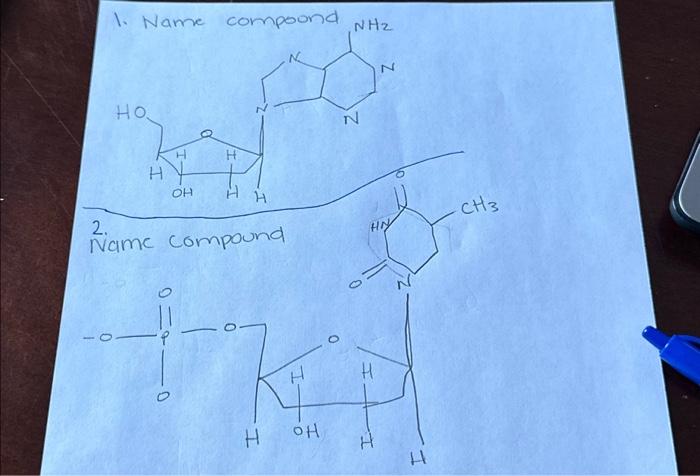 1. Name compoond
NH2
N
N
N
N
HO
O
H
H
H
OH
H
H
2.
Name compound
O
CH3
HN
O
N
O
-O
P
O
O
O
H
H
H
OH
H
H